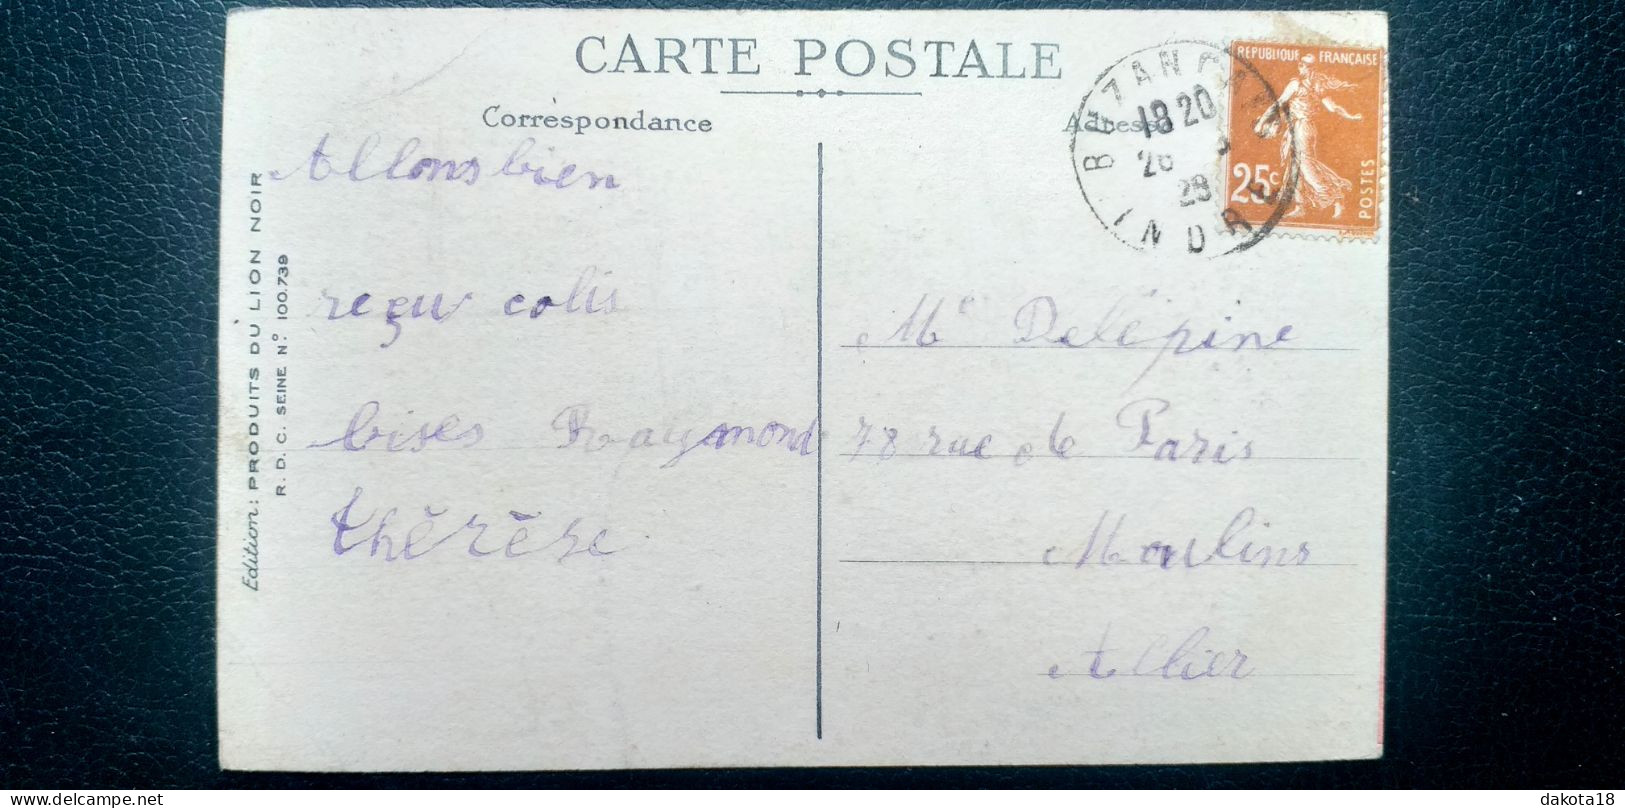 CARTE POSTALE
Correspondance
Adresse
Allons bien
reçu colis
bises Raymond
thérèse
Edition: PRODUITS DU LION NOIR
R. D. C. SEINE N° 100.739
BUZANÇAIS
18 20
26
28
INDRE
REPUBLIQUE FRANÇAISE
25c
POSTES
Me Delépine
78 rue de Paris
Moulins
Allier
delcampe.net
dakota18